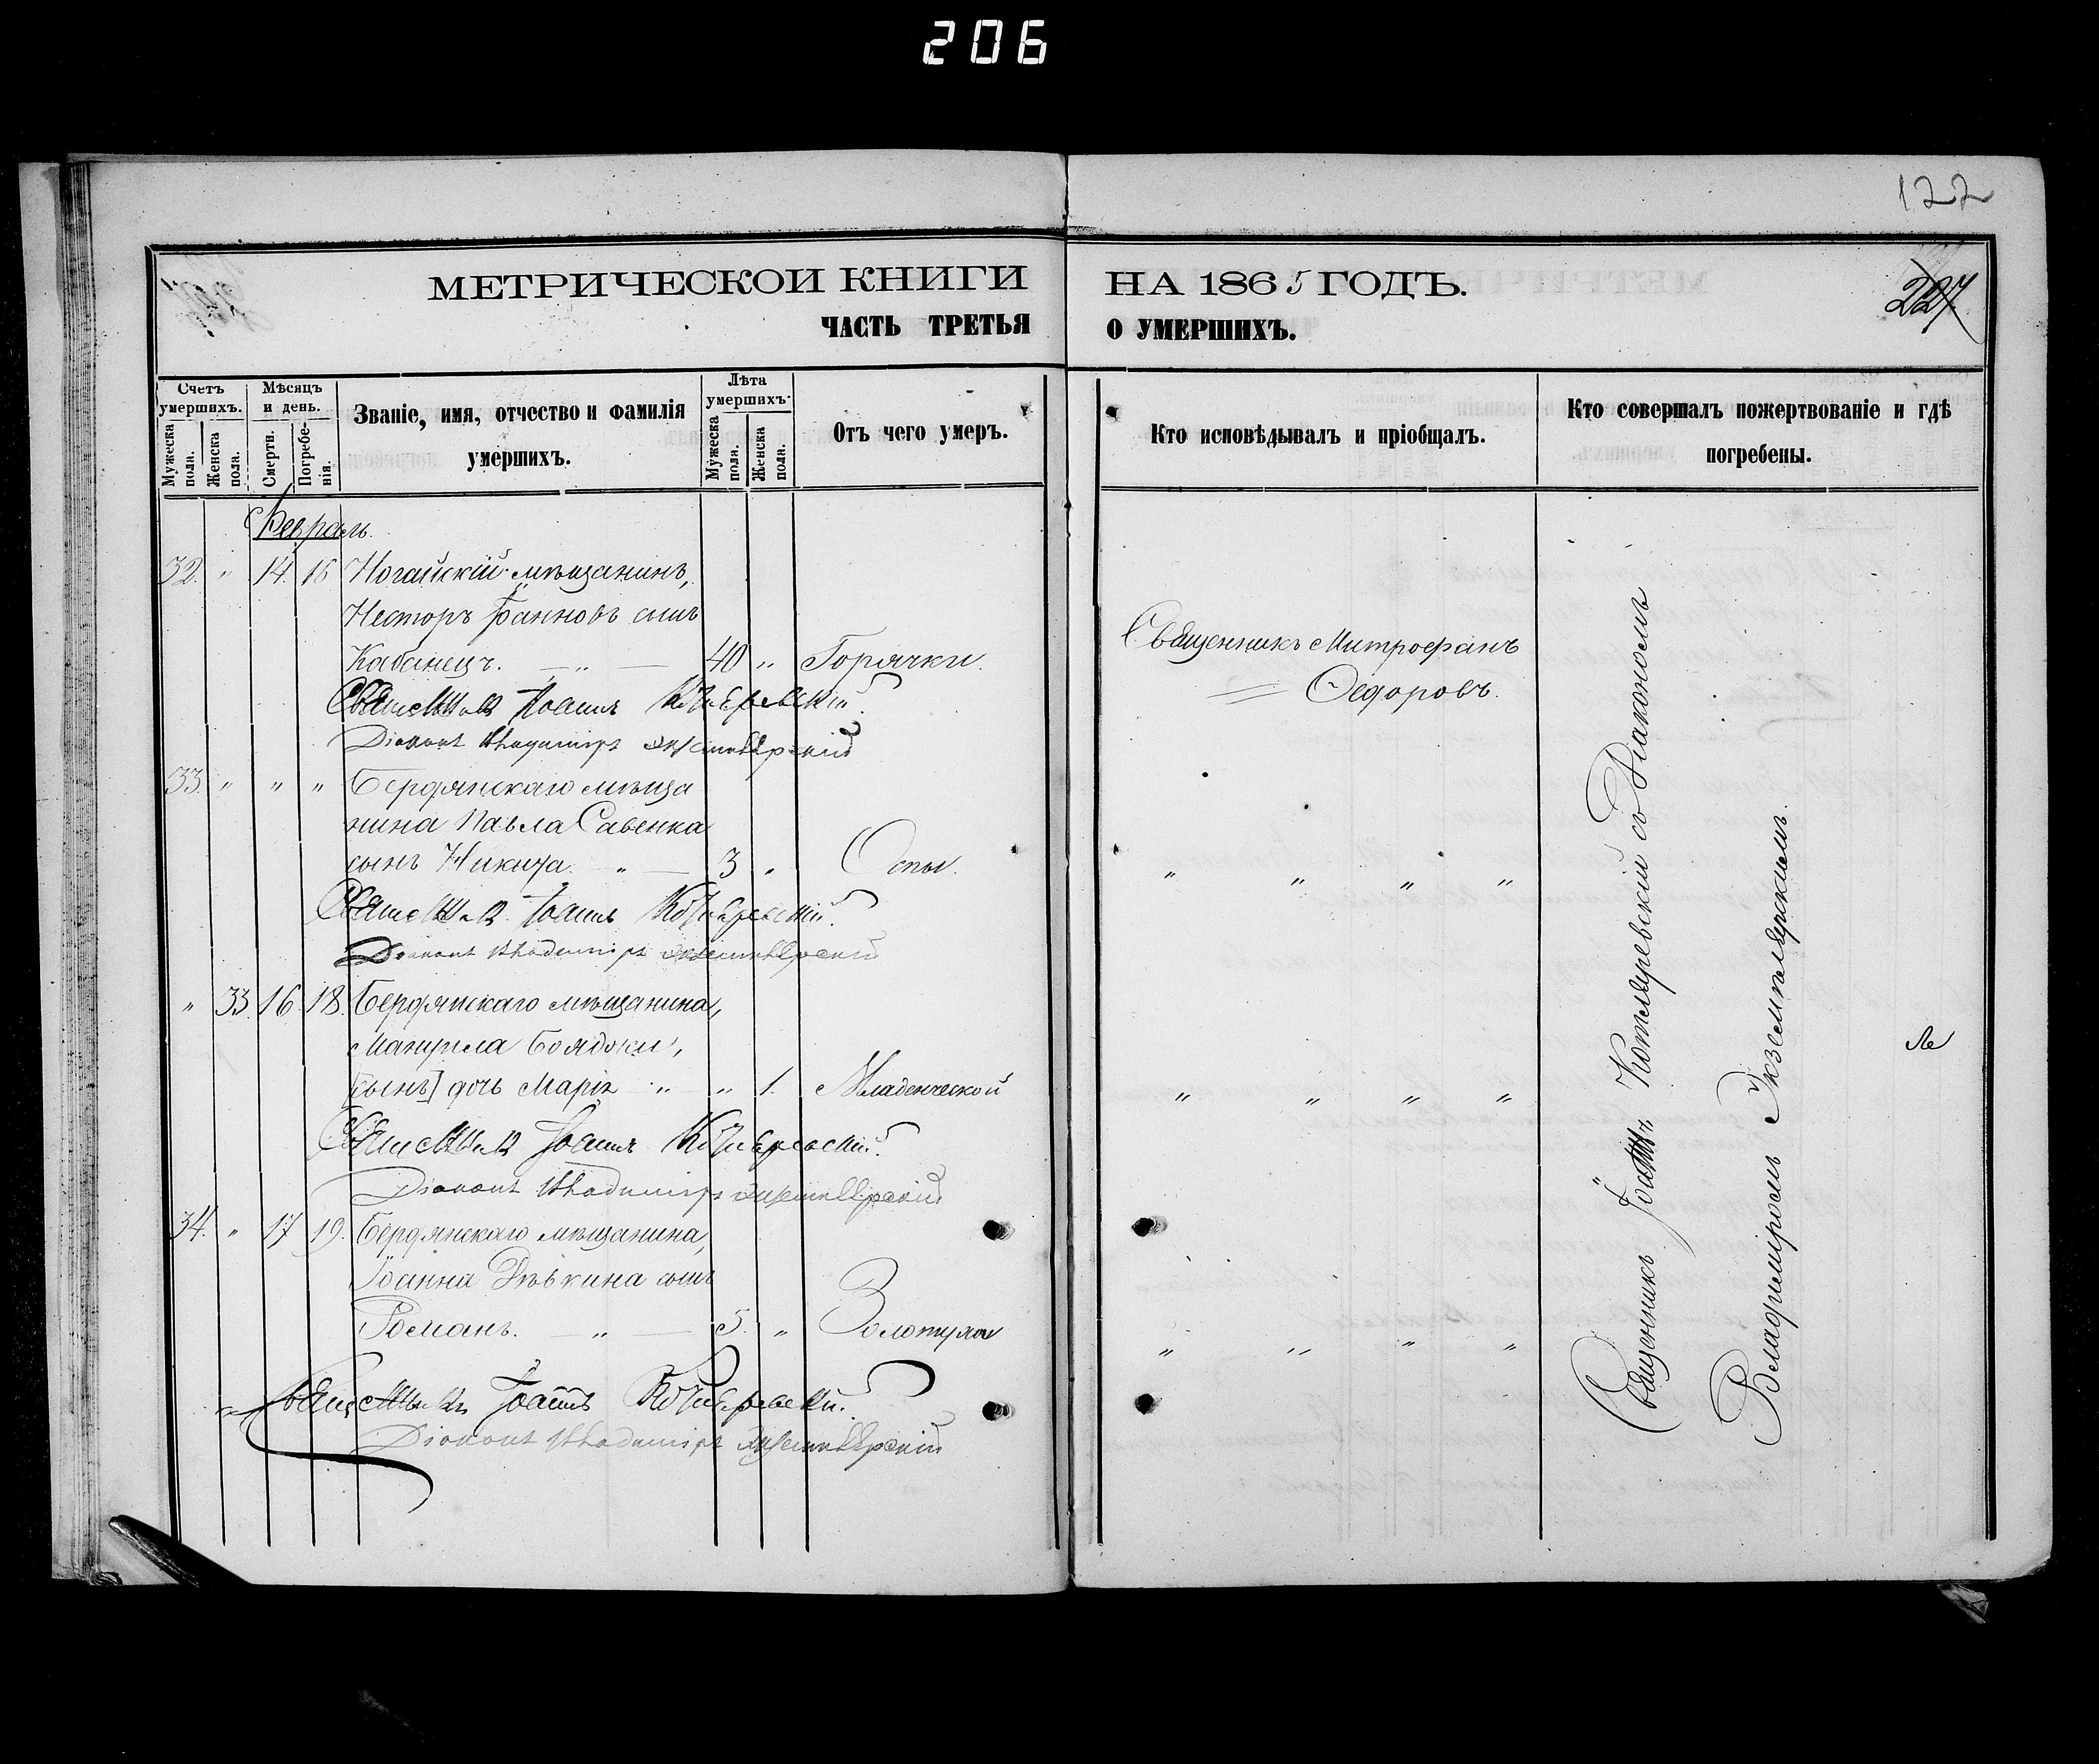 206
122
МЕТРИЧЕСКОЙ КНИГИ НА 1865 ГОДЪ.
227
ЧАСТЬ ТРЕТЬЯ О УМЕРШИХЪ.
Счетъ умершихъ.
Мужеска пола.
Женска пола.
Мѣсяцъ и день.
Смерти.
Погребенія.
Званіе, имя, отчество и фамилія умершихъ.
Лѣта умершихъ.
Мужеска пола.
Женска пола.
Отъ чего умеръ.
Кто исповѣдывалъ и пріобщалъ.
Кто совершалъ пожертвованіе и гдѣ погребены.
Февраль.
32. " 14. 16 Ногайскій мѣщанинъ,
Несторъ Іоанновъ сынъ
Кабанецъ. — " — 40 " Горячки.
Священникъ Митрофанъ
Ѳедоровъ.
Священникъ Іоаннъ Котляревскій
Діаконъ Владиміръ Экземплярскій
33. " " " Бердянскаго мѣща
нина Павла Савенка
сынъ Никита. " — 3 " Оспы. " " " "
Священникъ Іоаннъ Котляревскій.
Діаконъ Владиміръ Экземплярскій
" 33. 16. 18. Бердянскаго мѣщанина,
Мануила Бояджи,
[сынъ] дочь Марія " " 1. Младенческой " " " "
Священникъ Іоаннъ Котляревскій.
Діаконъ Владиміръ Экземплярскій
34. " 17 19. Бердянскаго мѣщанина,
Іоанна сынъ
Романъ. — " — 5. " Золотухи " " " "
Священникъ Іоаннъ Котляревскій.
Діаконъ Владиміръ Экземплярскій
Священникъ Іоаннъ Котляревскій съ Діакономъ
Владиміромъ Экземплярскимъ.